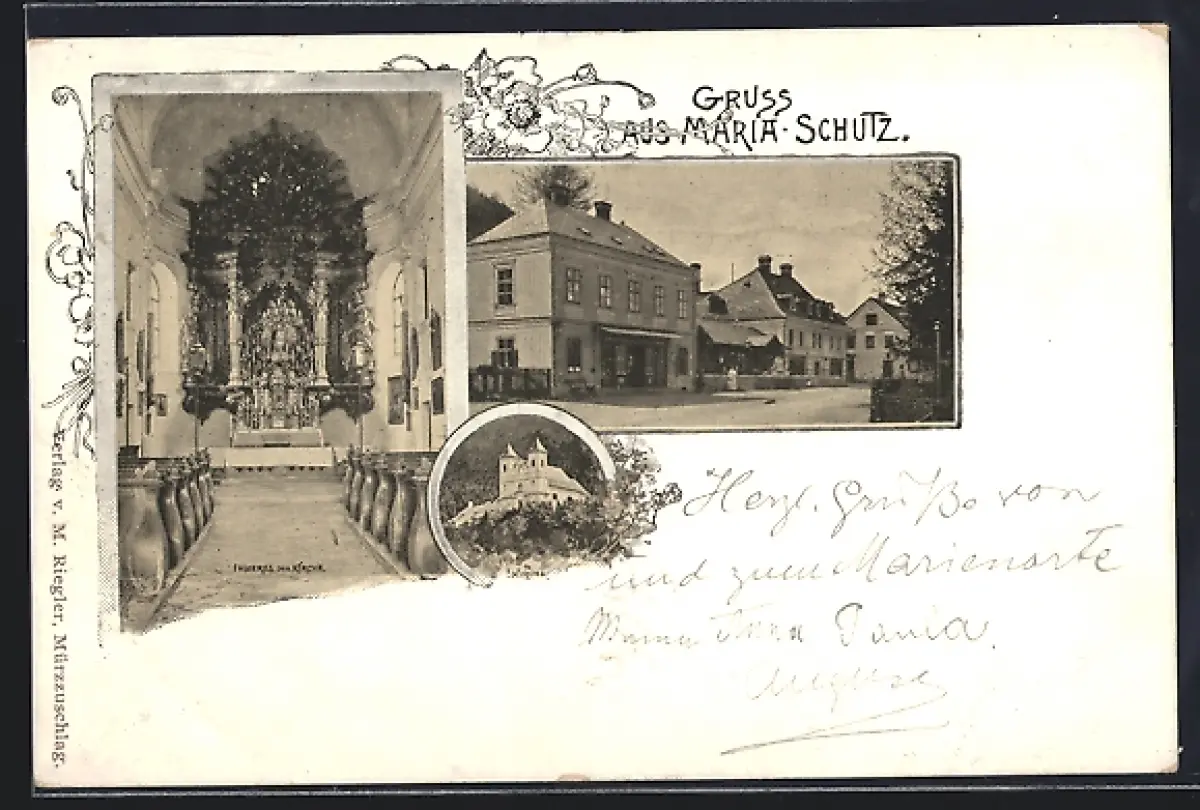 GRUSS
AUS MARIA-SCHUTZ.
INNERES DER KIRCHE.
Herzl. Grüße von
und zum Marienorte
Anna
Verlag v. M. Riegler, Mürzzuschlag.